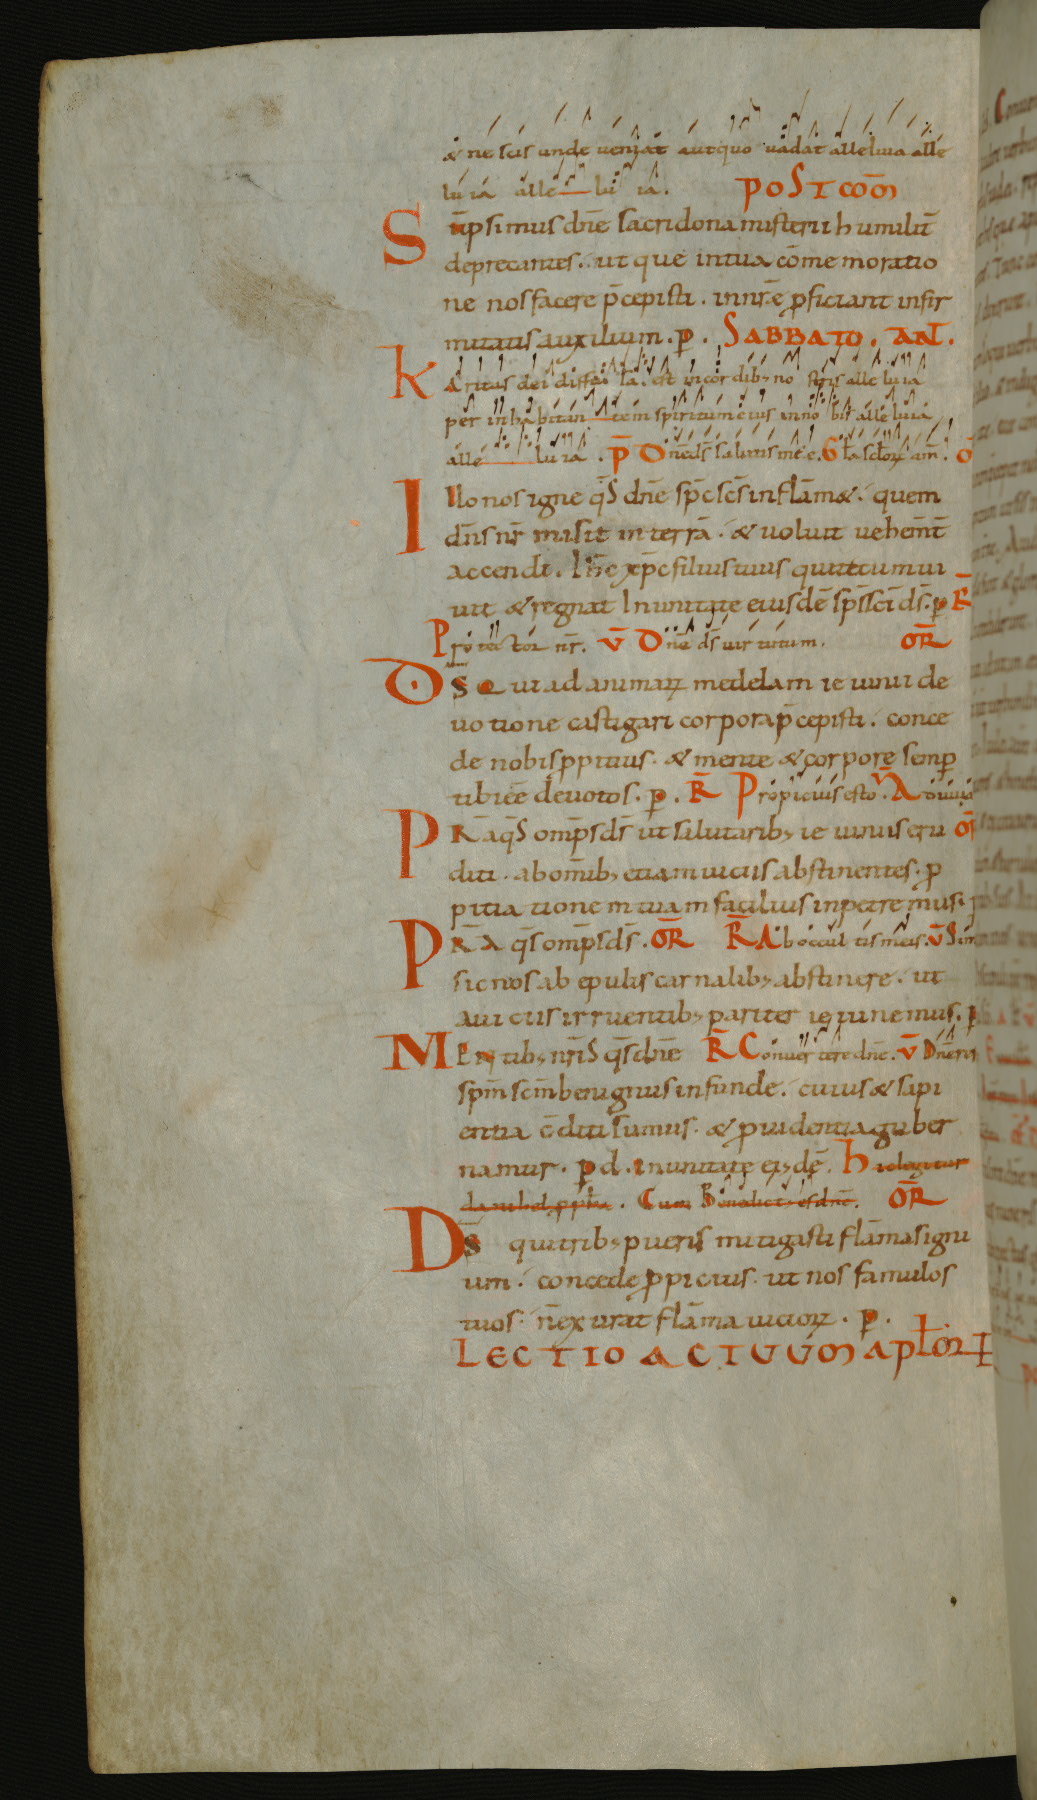 & nescis unde ueniat aut quo uadat alleluia alle
luia alle lu ia. POSTCOM̄
Sūpsimus dn̄e sacri dona misterii humilit̄
deprecantes. ut que in tua cōmemoratio
ne nos facere p̄cepisti. in nr̄e proficiant infir
mitatis auxilium. p. SABBATO. AN̄.
Karitas dei diffusa est in cordib; nostris alleluia
per inhabitantem spiritum eius in nobis alleluia
alle luia. P̄ Dn̄e ds̄ salutis meę. Gl̄a sclōꝝ am̄. O
Illo nos igne qs̄ dn̄e sp̄c sc̄s inflām&. quem
dn̄s nr̄ misit in terrā. & uoluit uehem̄t
accendi. Ih̄c xp̄c filius tuus qui tecum ui
uit & regnat In unitate eiusdē sp̄s sc̄i ds̄. p R̄
Protector nr̄. V̄ Dn̄e ds̄ uirtutum. OR̄
Ds̄ Qui ad animaꝝ medelam ieiunii de
uotione castigari corpora p̄cepisti. conce
de nobis ppitius. & mente & corpore semp
tibi eē deuotos. p. R̄ Propicius esto. V̄ Adiuua
PR̄A qs̄ omp̄s ds̄ ut salutarib; ieiuniis eru OR̄
diti. ab om̄ib; etiam uiciis abstinentes. p
pitiationem tuam facilius inpetremus. p
PR̄A qs̄ omp̄s ds̄. OR̄ R̄ Ab occultis meis. V̄ Si m
sic nos ab epulis carnalib; abstinere. ut
a uiciis irruentib; pariter ieiunemus. p
MENtib; nr̄is qs̄ dn̄e R̄ Conuertere dn̄e. V̄ Dn̄e re
sp̄m sc̄m benignus infunde. cuius & sapi
entia c̄diti sumus. & prouidentia guber
namur. p d. in unitate ei;dē. hic legitur
danihel ppha. Cum Benedictus es dn̄e. OR̄
Ds̄ qui trib; pueris mitigasti flāmas igni
um. concede ppicius. ut nos famulos
tuos. n̄ exurat flāma uicioꝝ. p.
LECTIO ACTUUM APl̄oꝝ